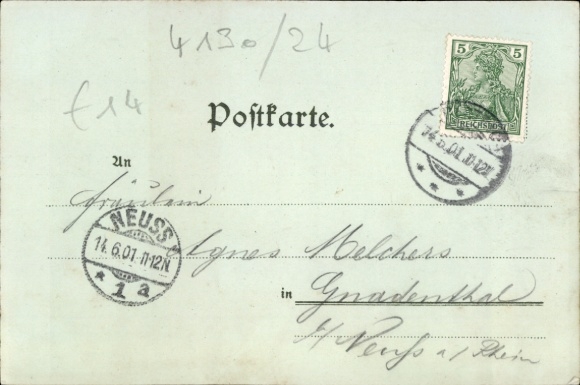 4130/24
€14
5 5
REICHSPOST
14.6.01.11-12N
* * *
Postkarte.
An
Fräulein
NEUSS
14.6.01.11-12N
* 1a
Agnes Melchers
in Gnadenthal
b/ Neuß a/ Rhein